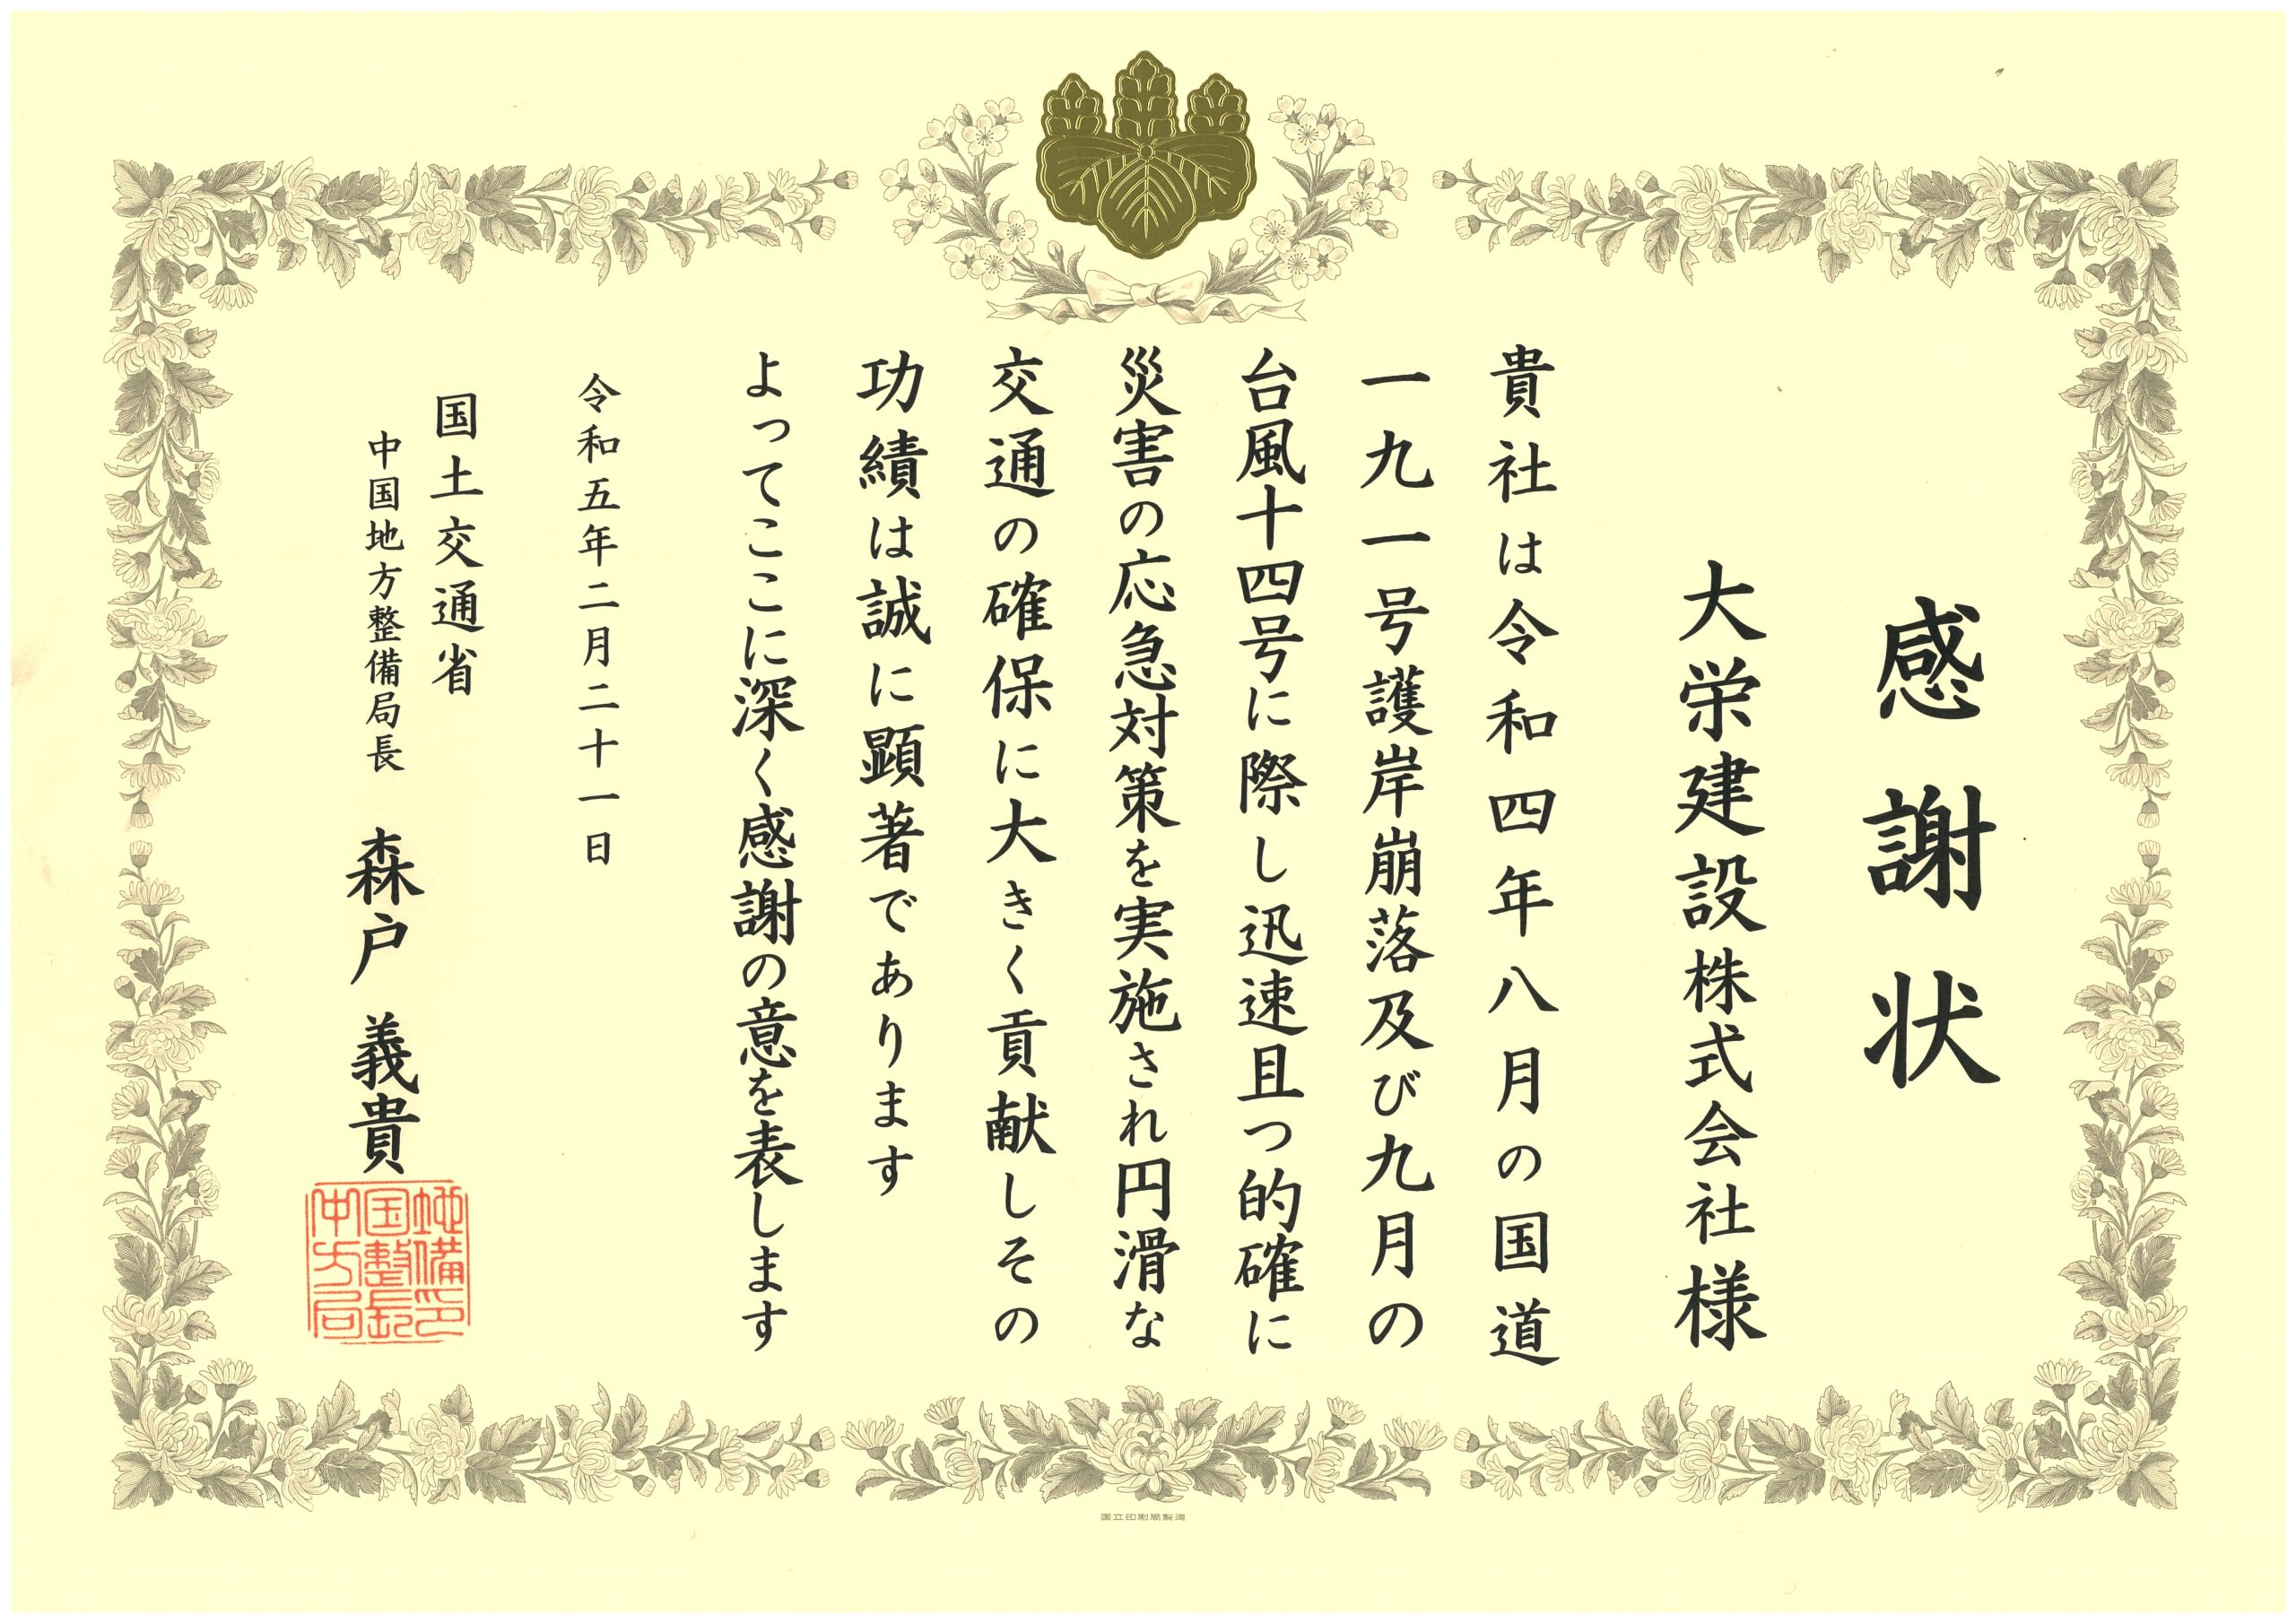 感謝状
大栄建設株式会社様
貴社は令和四年八月の国道
一九一号護岸崩落及び九月の
台風十四号に際し迅速且つ的確に
災害の応急対策を実施され円滑な
交通の確保に大きく貢献しその
功績は誠に顕著であります
よってここに深く感謝の意を表します
令和五年二月二十一日
国土交通省
中国地方整備局長
森戸 義貴
中国地方整備局長印
国立印刷局製造